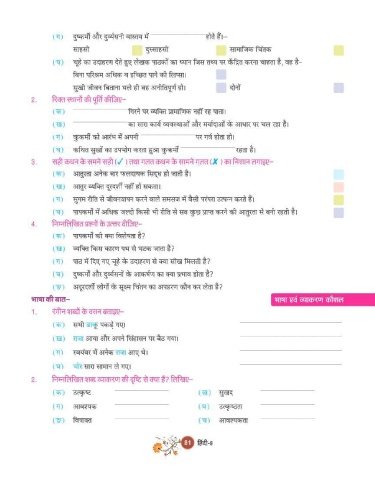 (ग) दुष्कर्मी और दुर्व्यसनी वास्तव में होते हैं।–
साहसी दुस्साहसी सामाजिक चिंतक
(घ) चूहे का उदाहरण देते हुए लेखक पाठकों का ध्यान जिस तथ्य पर केंद्रित करना चाहता है, वह है-
बिना परिश्रम अधिक व इच्छित पाने की लिप्सा।
सुखी जीवन बिताना चले ही वह अनीतिपूर्ण हो। दोनों
2. रिक्त स्थानों की पूर्ति कीजिए–
(क) गिरने पर व्यक्ति प्रामाणिक नहीं रह पाता।
(ख) का सारा कार्य व्यवस्थाओं और मर्यादाओं के आधार पर चल रहा है।
(ग) कुकर्मी को आरंभ में अपनी पर गर्व होता हो।
(घ) कथित सुखों का उपयोग करता हुआ कुकर्मी रहता है।
3. सही कथन के सामने सही (✓) तथा गलत कथन के सामने गलत (✗) का निशान लगाइए–
(क) आतुरता अनेक बार फलदायक सिद्ध हो जाती है।
(ख) आतुर व्यक्ति दूरदर्शी नहीं हो सकता।
(ग) सुगम रीति से जीवनयापन करने वाले समाज में वैसी परंपरा उत्पन्न करते हैं।
(घ) पापकर्मों में अधिक जल्दी किसी भी रीति से सब कुछ प्राप्त करने की आतुरता से बनी रहती है।
4. निम्नलिखित प्रश्नों के उत्तर दीजिए–
(क) पापकर्मों की क्या विशेषता है?
(ख) व्यक्ति किस कारण पथ से भटक जाता है?
(ग) पाठ में दिए गए चूहे के उदाहरण से क्या सीख मिलती है?
(घ) दुष्कर्मों और दुर्व्यसनों के आकर्षण का क्या प्रभाव होता है?
(ङ) अदूरदर्शी लोगों के सूक्ष्म चिंतन का अपहरण कौन कर लेता है?
भाषा की बात– भाषा एवं व्याकरण कौशल
1. रंगीन शब्दों के वचन बताइए–
(क) सभी डाकू पकड़े गए।
(ख) राजा आया और अपने सिंहासन पर बैठ गया।
(ग) स्वयंवर में अनेक राजा आए थे।
(घ) चोर सारा सामान ले गए।
2. निम्नलिखित शब्द व्याकरण की दृष्टि से क्या हैं? लिखिए–
(क) उत्कृष्ट (ख) सुखद
(ग) आवश्यक (घ) उत्कृष्ठता
(ङ) विषाक्त (च) आवश्यकता
51 हिंदी-8